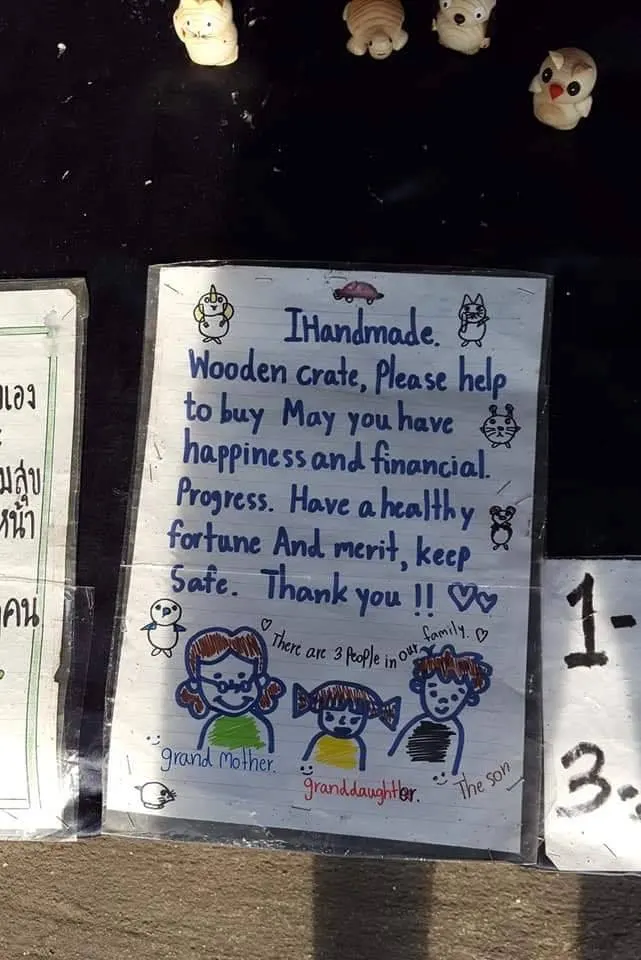 IHandmade.
Wooden crate, Please help
to buy May you have
happiness and financial.
Progress. Have a healthy
fortune And merit, keep
Safe. Thank you !!
There are 3 People in our family.
grand Mother.
granddaughter.
The son
1-
3-